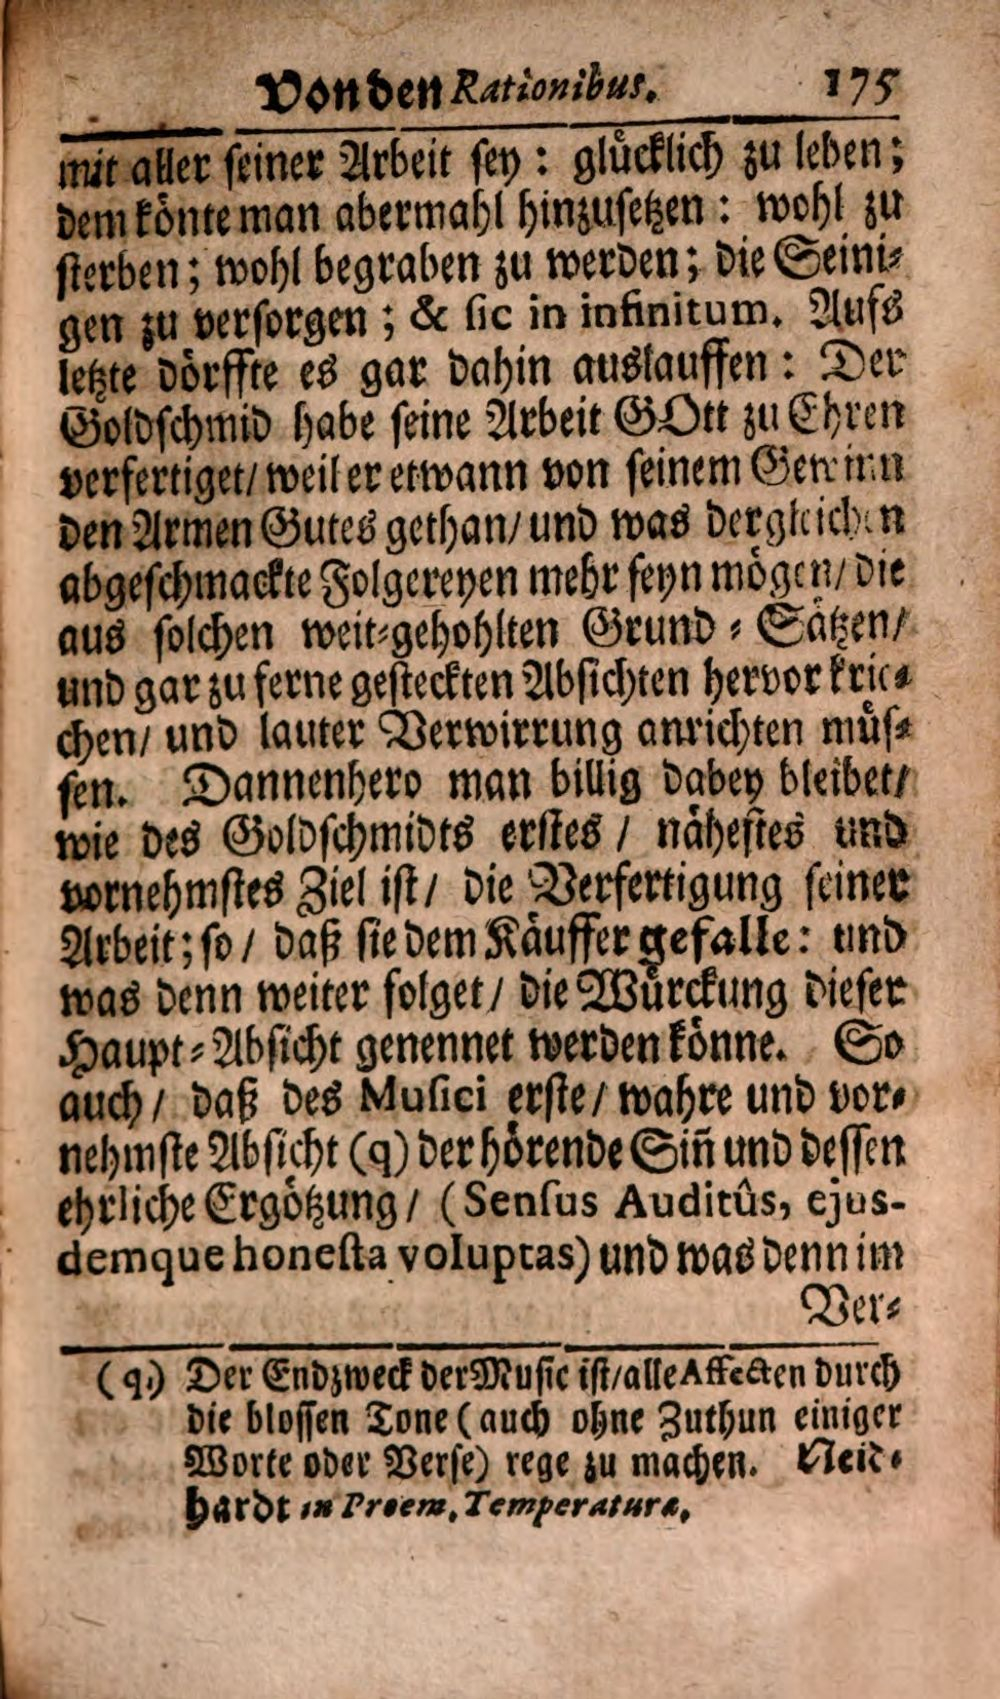 Von den Rationibus. 175
mit aller seiner Arbeit sey: glücklich zu leben;
dem könte man abermahl hinzusetzen: wohl zu
sterben; wohl begraben zu werden; die Seini-
gen zu versorgen; & sic in infinitum. Aufs
letzte dörffte es gar dahin auslauffen: Der
Goldschmid habe seine Arbeit GOtt zu Ehren
verfertiget/ weil er etwann von seinem Gewinn
den Armen Gutes gethan/ und was dergleichen
abgeschmackte Folgereyen mehr seyn mögen/ die
aus solchen weit-gehohlten Grund-Sätzen/
und gar zu ferne gesteckten Absichten hervor krie-
chen/ und lauter Verwirrung anrichten müs-
sen. Dannenhero man billig dabey bleibet/
wie des Goldschmidts erstes / näheftes und
vornehmstes Ziel ist/ die Verfertigung seiner
Arbeit; so/ daß sie dem Käuffer gefalle: und
was denn weiter folget/ die Würckung dieser
Haupt-Absicht genennet werden könne. So
auch/ daß des Musici erste/ wahre und vor-
nehmste Absicht (q) der hörende Siñ und dessen
ehrliche Ergötzung/ (Sensus Auditûs, ejus-
demque honesta voluptas) und was denn im
Ver-
(q.) Der Endzweck der Music ist/ alle Affecten durch
die blossen Tone (auch ohne Zuthun einiger
Worte oder Verse) rege zu machen. Neid-
hardt in Proem. Temperatura.